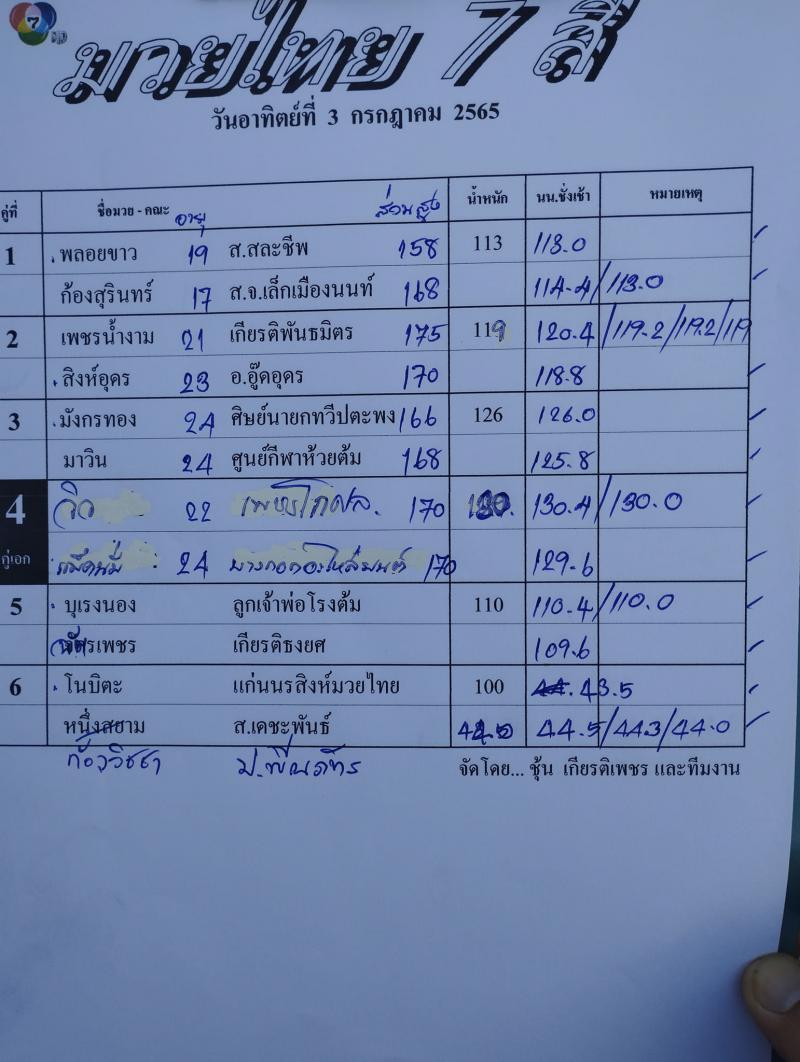 7
มวยไทย 7 สี
วันอาทิตย์ที่ 3 กรกฎาคม 2565
คู่ที่ ชื่อมวย - คณะ อายุ ส่วนสูง น้ำหนัก นน.ชั่งเช้า หมายเหตุ
1 พลอยขาว 19 ส.สละชีพ 158 113 113.0
ก้องสุรินทร์ 17 ส.จ.เล็กเมืองนนท์ 168 114.4/113.0
2 เพชรน้ำงาม 21 เกียรติพันธมิตร 175 119 120.4/119.2/119.2/119
สิงห์อุดร 23 อ.อู๊ดอุดร 170 118.8
3 มังกรทอง 24 ศิษย์นายกทวีปตะพง 166 126 126.0
มาวิน 24 ศูนย์กีฬาห้วยต้ม 168 125.8
4 22 170 130. 130.4/130.0
คู่เอก 24 170 129.6
5 บุเรงนอง ลูกเจ้าพ่อโรงต้ม 110 110.4/110.0
ฉัตรเพชร เกียรติธงยศ 109.6
6 โนบิตะ แก่นนรสิงห์มวยไทย 100 44. 43.5
หนึ่งสยาม ส.เดชะพันธ์ 44.5/44.3/44.0
ก้องวิชชา ป.พีณภัทร จัดโดย... ชุ้น เกียรติเพชร และทีมงาน